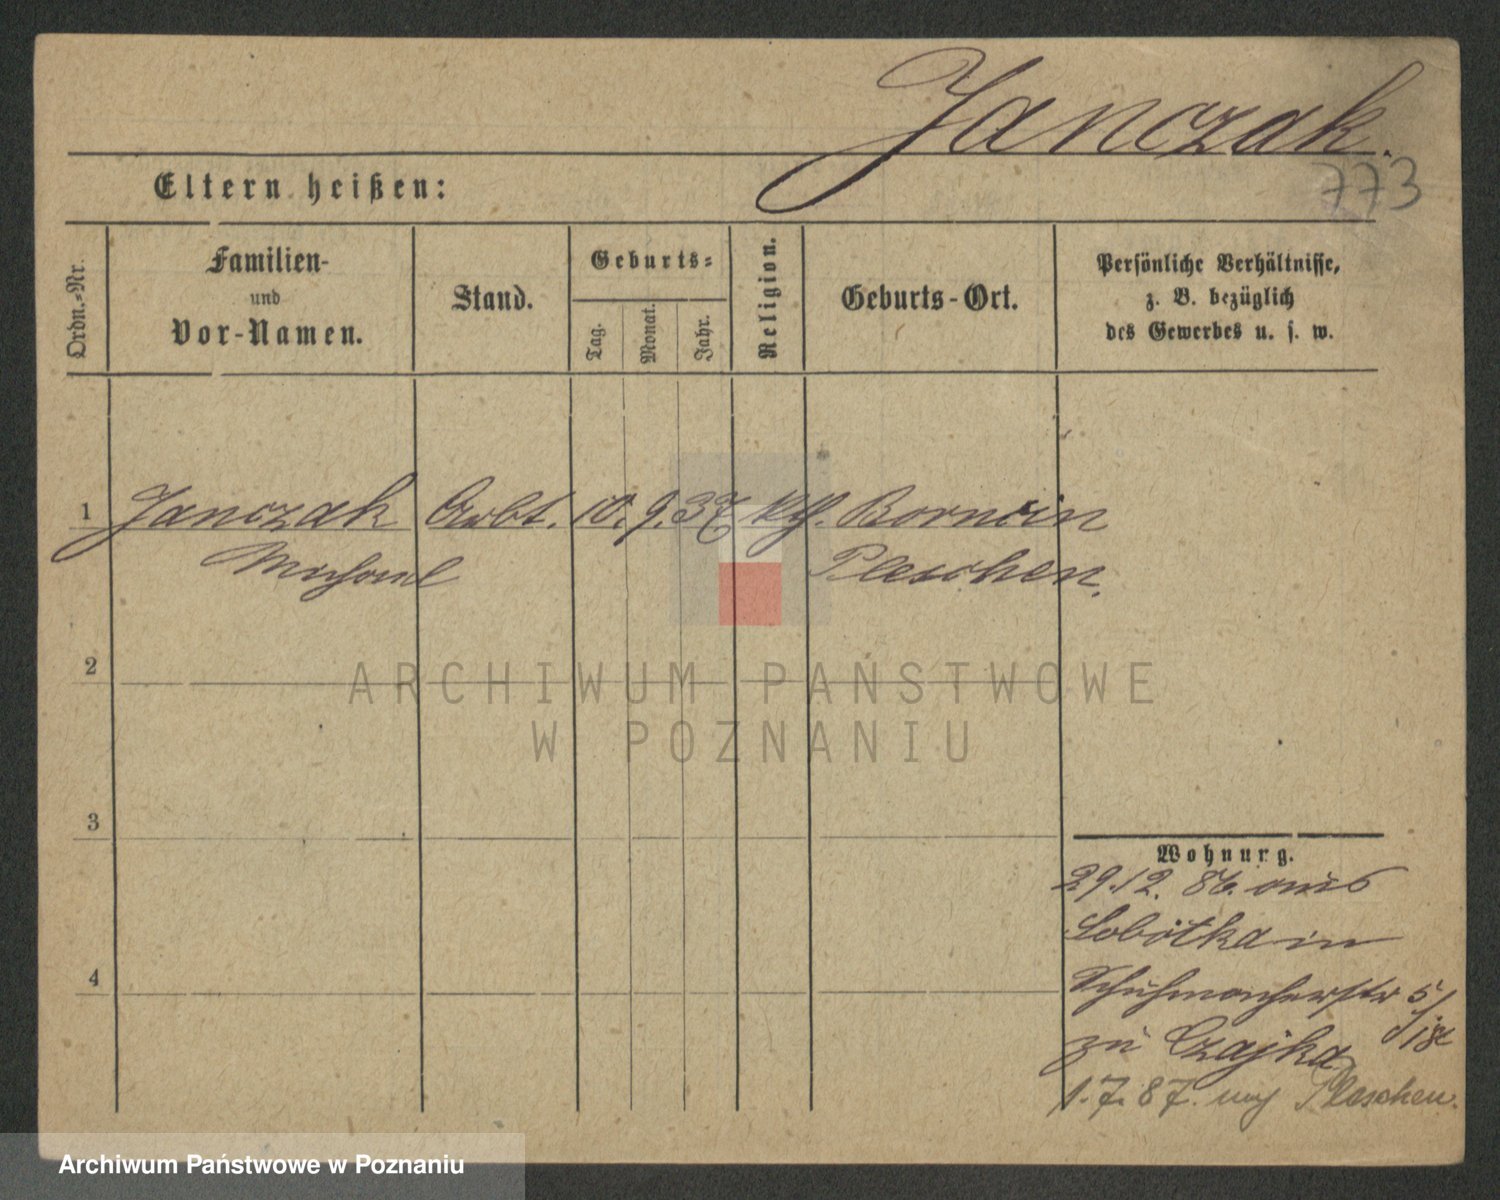 Janczak.
773
Eltern heißen:
Ordn.=Nr.
Familien-
und
Vor-Namen.
Stand.
Geburts=
Tag.
Monat.
Jahr.
Religion.
Geburts-Ort.
Persönliche Verhältnisse,
z. B. bezüglich
des Gewerbes u. s. w.
1 Janczak Arbt. 10. 9. 37 kth. Bornein
Michael Pleschen.
2
3
4
Wohnung.
29.12. 86. aus
Sobótka in
Schuhmacherstr 5/
zu Czajka
1.7.87. nach Pleschen.
ARCHIWUM PAŃSTWOWE
W POZNANIU
Archiwum Państwowe w Poznaniu